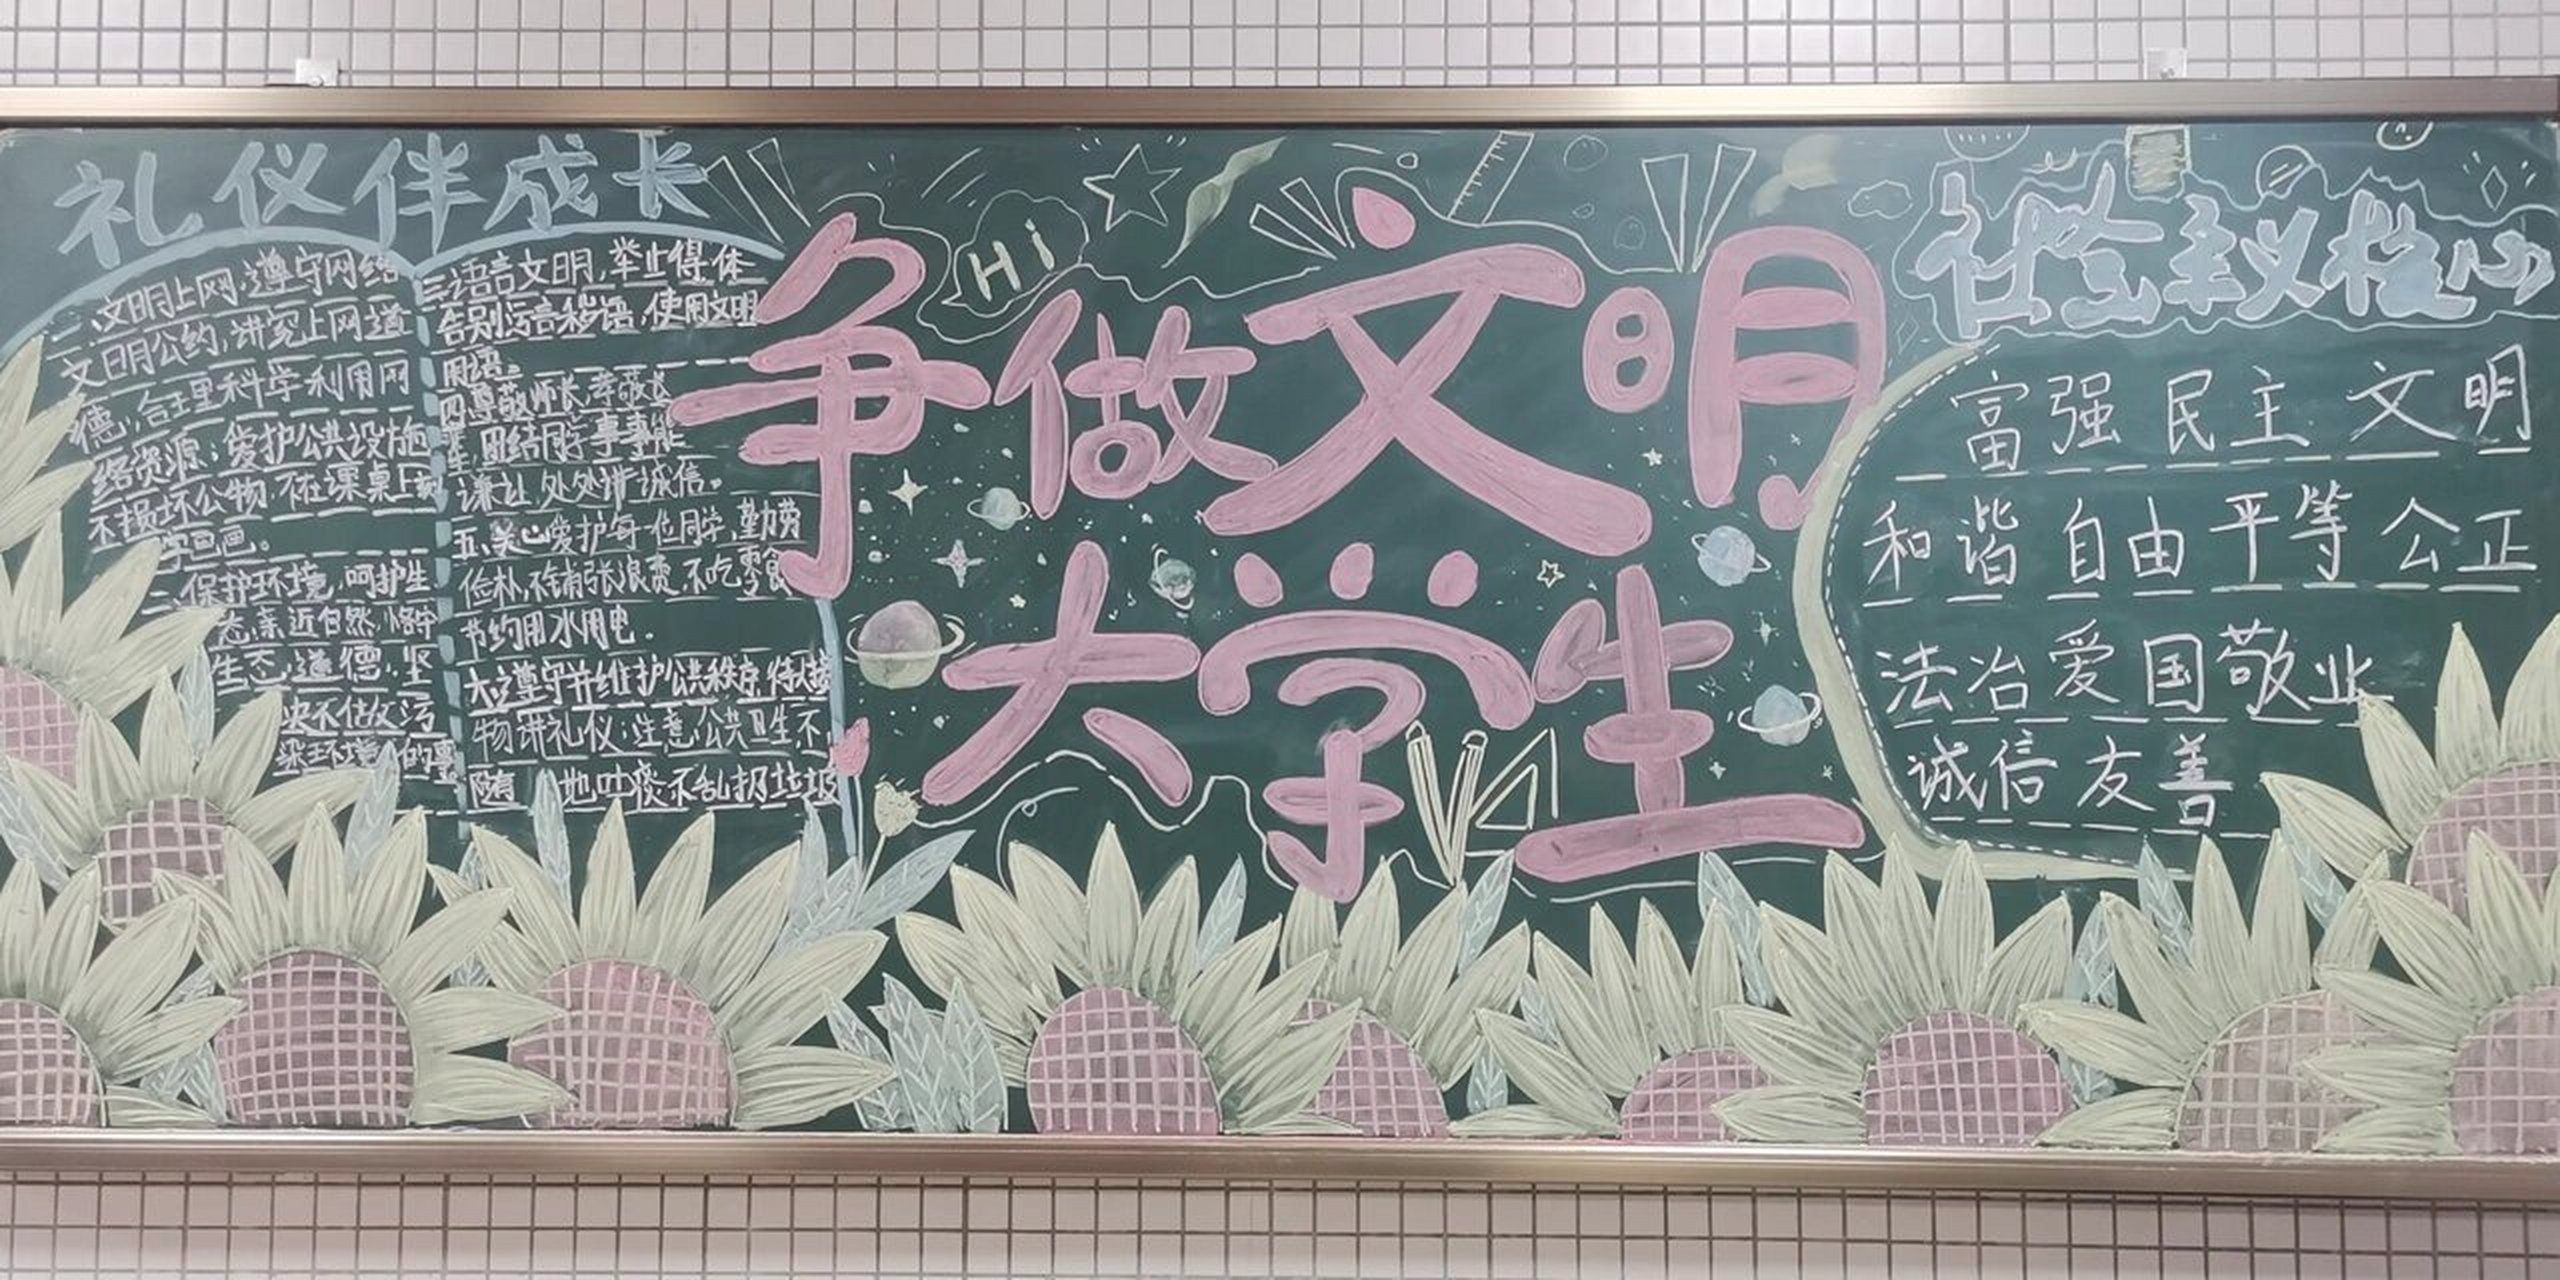 礼仪伴成长
一、文明上网,遵守网络
文明公约,讲究上网道
德,合理科学利用网
络资源;爱护公共设施
不损坏公物,不在课桌上刻
字画画。
二、保护环境,呵护生
态,亲近自然,恪守
生态道德,坚
决不做污
染环境的事
三、语言文明,举止得体
告别污言秽语,使用文明
用语。
四、尊敬师长,孝敬长
辈,团结同学事事能
谦让,处处讲诚信。
五、关心爱护每一位同学,勤劳
俭朴,不铺张浪费,不吃零食
节约用水用电.
六、遵守并维护公共秩序,待人接
物讲礼仪;注意公共卫生,不
随地吐痰不乱扔垃圾
Hi
争做文明
大学生
社会主义核心
富强 民主 文明
和谐 自由 平等 公正
法治 爱国 敬业
诚信 友善